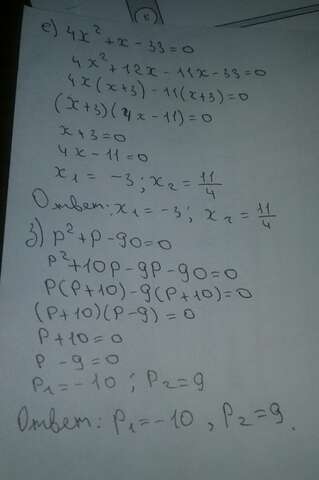 е) 4x² + x - 33 = 0
4x² + 12x - 11x - 33 = 0
4x(x+3) - 11(x+3) = 0
(x+3)(4x-11) = 0
x+3=0
4x-11=0
x₁ = -3; x₂ = 11/4
Ответ: x₁ = -3; x₂ = 11/4
з) p² + p - 90 = 0
p² + 10p - 9p - 90 = 0
p(p+10) - 9(p+10) = 0
(p+10)(p-9) = 0
p+10=0
p-9=0
p₁ = -10; p₂ = 9
Ответ: p₁ = -10, p₂ = 9.